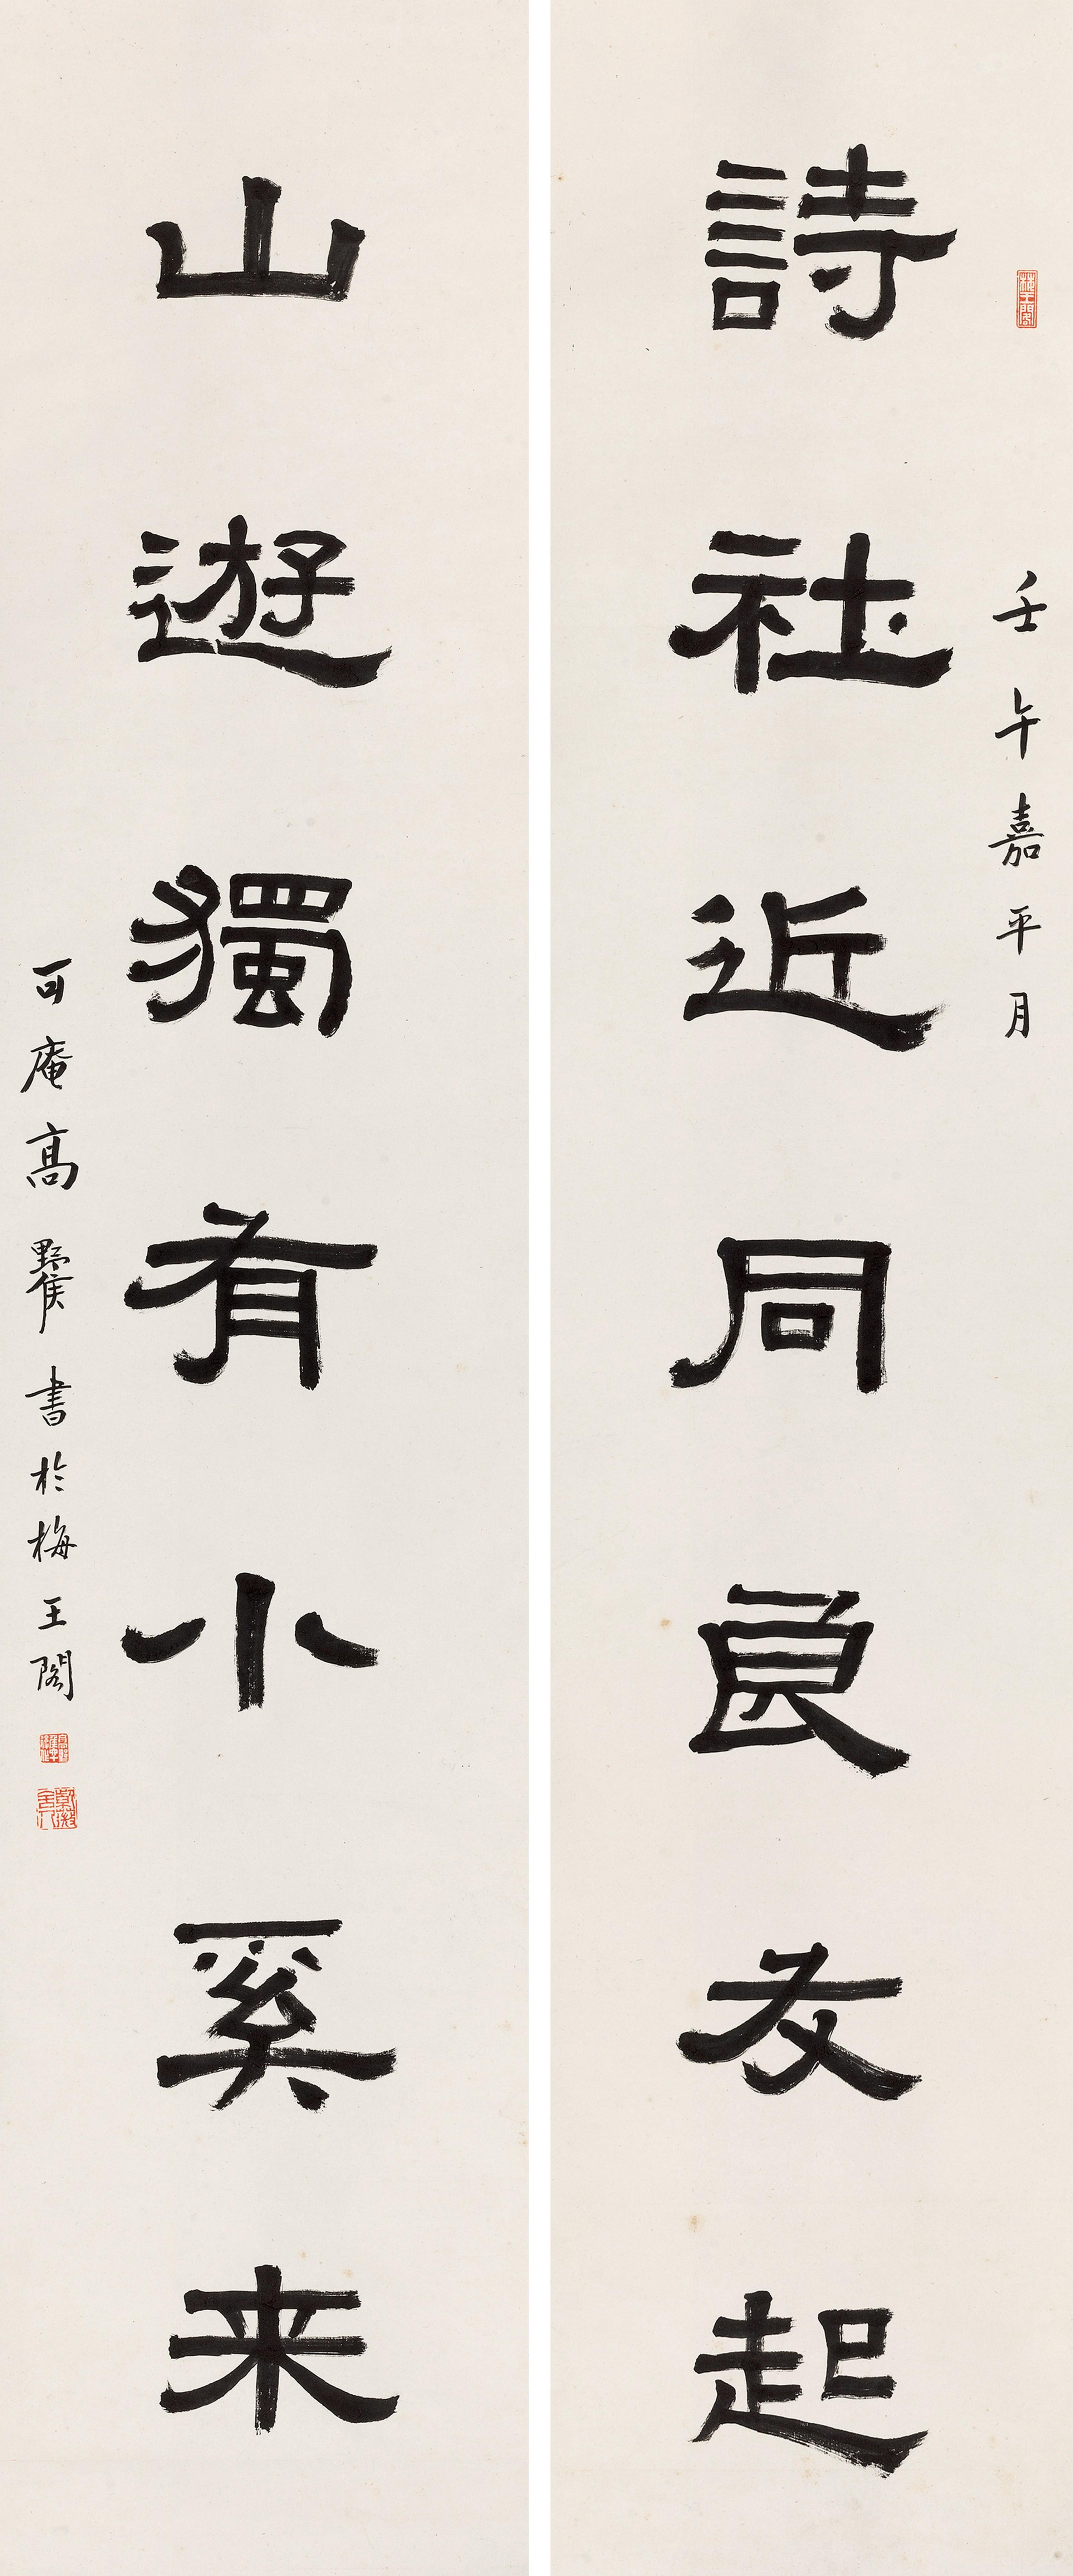 梅王閣
壬午嘉平月
詩社近同良友起
山遊獨有小奚来
可庵高野侯書於梅王閣